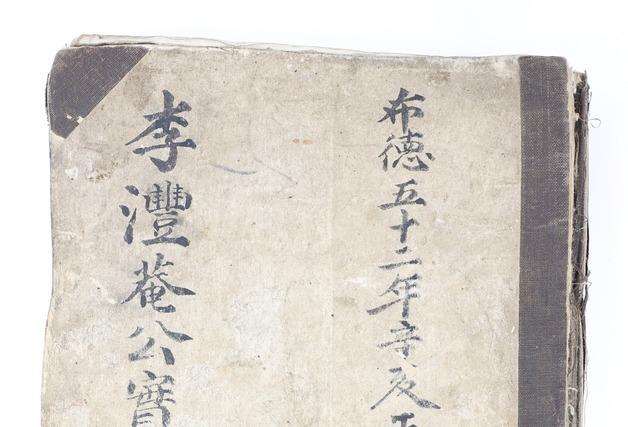 布德五十二年辛亥正
李灃菴公實